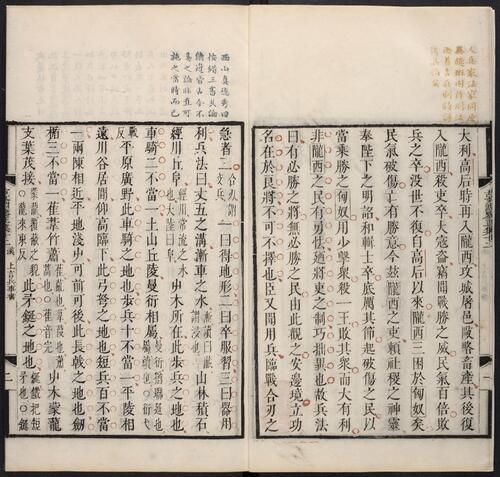 大利高后時再入隴西攻城屠邑敺略畜產其後復
入隴西殺吏卒大寇盜竊聞戰勝之威民氣百倍敗
兵之卒沒世不復自高后以來隴西三困於匈奴矣
民氣破傷亡有勝意今茲隴西之吏賴社稷之神靈
奉陛下之明詔和輯士卒底厲其節起破傷之民以
當乘勝之匈奴用少擊衆殺一王敗其衆而大有利
非隴西之民有勇怯廼將吏之制巧拙異也故兵法
曰有必勝之將無必勝之民由此觀之安邊境立功
名在於良將不可不擇也臣又聞用兵臨戰合刃之
西山真德秀曰
按錯三書其論
備邊皆古今不
易之論非直可
施之當時而已
急者三合刃謂交兵一曰得地形二曰卒服習三曰器用
利兵法曰丈五之溝漸車之水山林積石
經川丘阜經川常流之水也大陸曰阜屮木所在此步兵之地也
車騎二不當一土山丘陵曼衍相屬曼衍猶聯延也屬續也○衍弋
戰反平原廣野此車騎之地也步兵十不當一平陵相
遠川谷居間仰高臨下此弓弩之地也短兵百不當
一兩陳相近平地淺屮可前可後此長戟之地也劔
楯三不當一萑葦竹蕭萑薍也葦葭也蕭蒿也○萑音完屮木蒙蘢
支葉茂接蒙蘢覆蔽之貌○蘢來東反此矛鋋之地也鋋鐵把短矛也○鋋